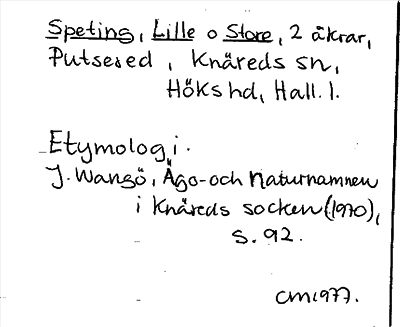 Speting, Lille o Store, 2 åkrar,
Putsered, Knäreds sn,
Höks hd, Hall. l.
Etymologi.
J. Wangö, Ägo- och Naturnamnen
i Knäreds socken (1970),
s. 92.
CM 1977.